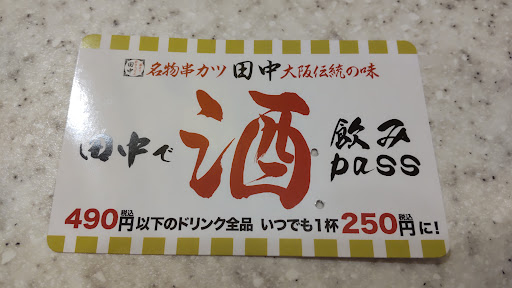 名物串カツ 田中 大阪伝統の味
田中で 酒 飲み pass
490円税込以下のドリンク全品 いつでも1杯250円税込に!